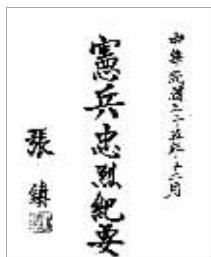 中華民國三十五年十二月
憲兵忠烈紀要
張鎮